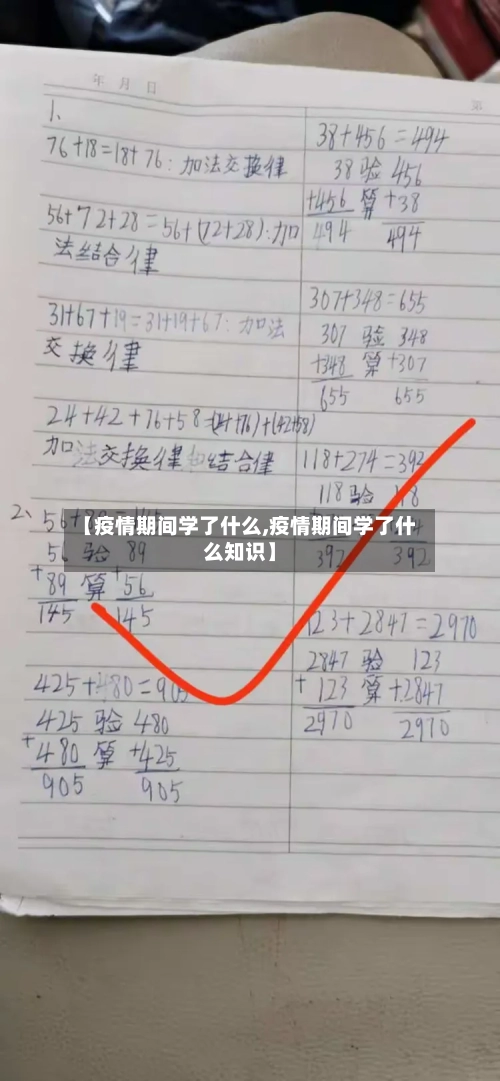 年 月 日
第
1、
76+18=18+76：加法交换律
56+72+28=56+(72+28):加
法结合律
31+67+19=31+19+67：加法
交换律
24+42+76+58=(24+76)+(42+58)
加法交换律和结合律
2、
56 验 89
+89 算 +56
145 145
425+480=905
425 验 480
+480 算 +425
905 905
38+456=494
38 验 456
+456 算 +38
494 494
307+348=655
307 验 348
+348 算 +307
655 655
118+274=392
118 验
392 392
123+2847=2970
2847 验 123
+123 算 +2847
2970 2970
【疫情期间学了什么,疫情期间学了什
么知识】